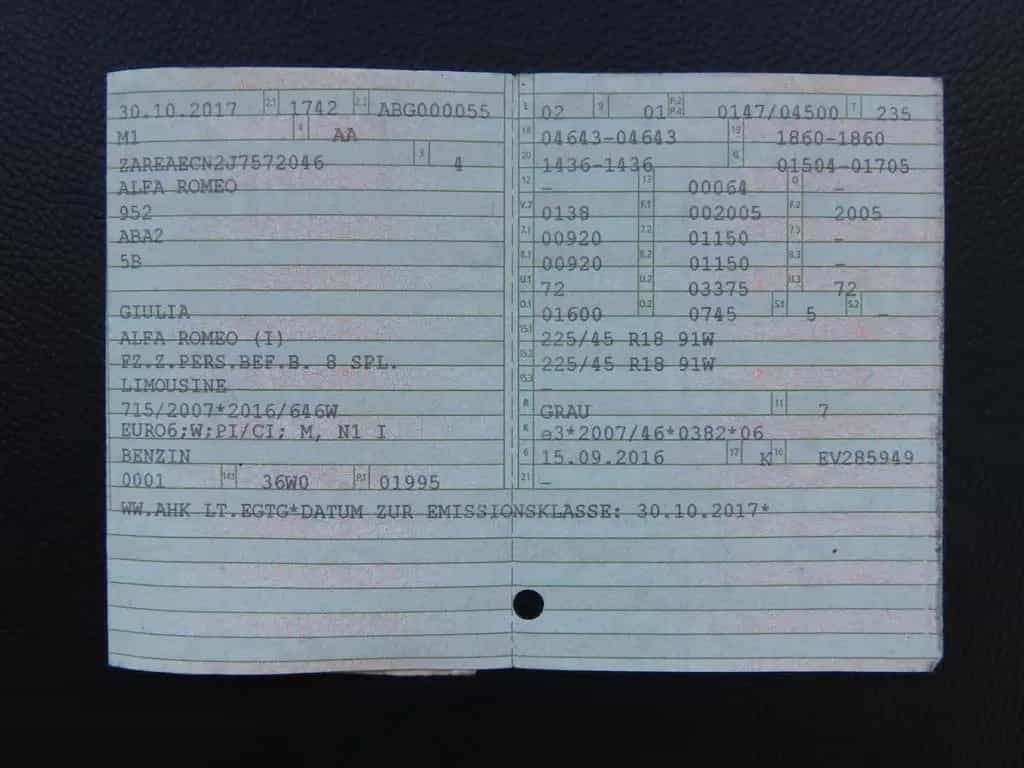 30.10.2017 2.1 1742 2.2 ABG000055
M1 4 AA
ZAREAECN2J7572046 3 4
ALFA ROMEO
952
ABA2
5B
GIULIA
ALFA ROMEO (I)
FZ.Z.PERS.BEF.B. 8 SPL.
LIMOUSINE
715/2007*2016/646W
EURO6;W;PI/CI; M, N1 I
BENZIN
0001 14.1 36W0 P.1 01995
L 02 9 01 P.2 P.4 0147/04500 T 235
18 04643-04643 19 1860-1860
20 1436-1436 G 01504-01705
12 – 13 00064 Q –
V.7 0138 F.1 002005 F.2 2005
7.1 00920 7.2 01150 7.3 –
8.1 00920 8.2 01150 8.3 –
U.1 72 U.2 03375 U.3 72
O.1 01600 O.2 0745 S.1 5 S.2 –
15.1 225/45 R18 91W
15.2 225/45 R18 91W
15.3 –
R GRAU 11 7
K e3*2007/46*0382*06
6 15.09.2016 17 K 16 EV285949
21 –
WW.AHK LT.EGTG*DATUM ZUR EMISSIONSKLASSE: 30.10.2017*